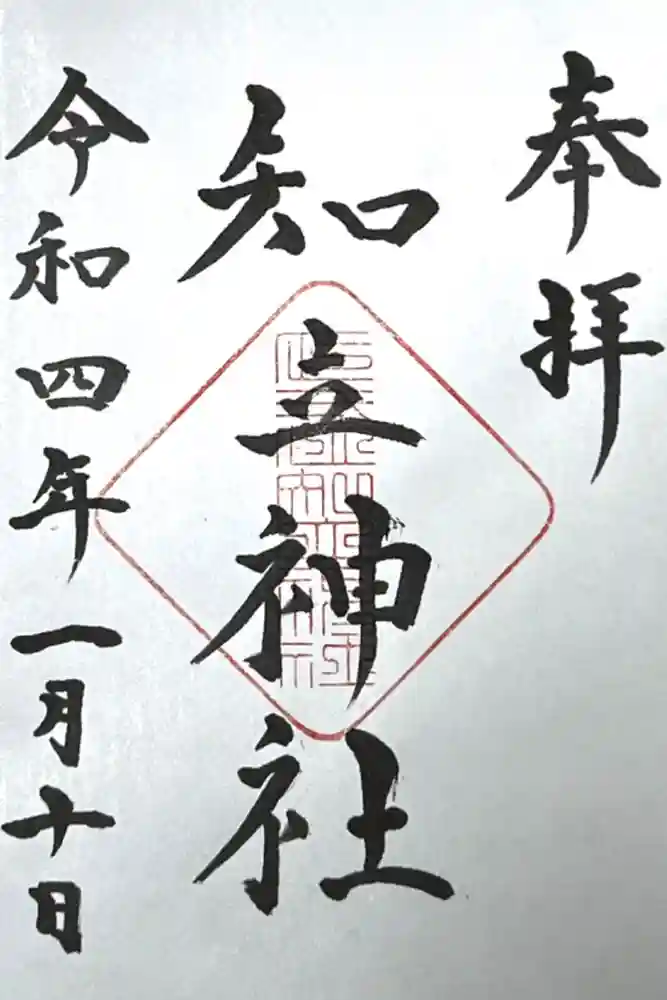 奉拝
知立神社
令和四年一月十日